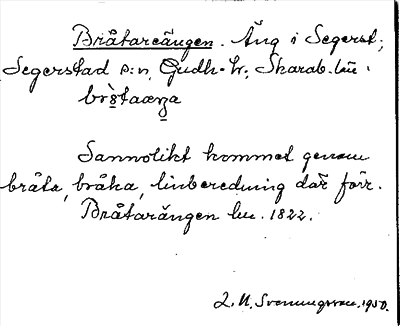 Bråtareängen. Äng i Segerst;
Segerstad s:n, Gudh. hr; Skarab. län.
Sannolikt kommet genom
bråta, bråka, linberedning där förr.
Bråtarängen lm. 1822.
L. N. Svenungsson. 1950.